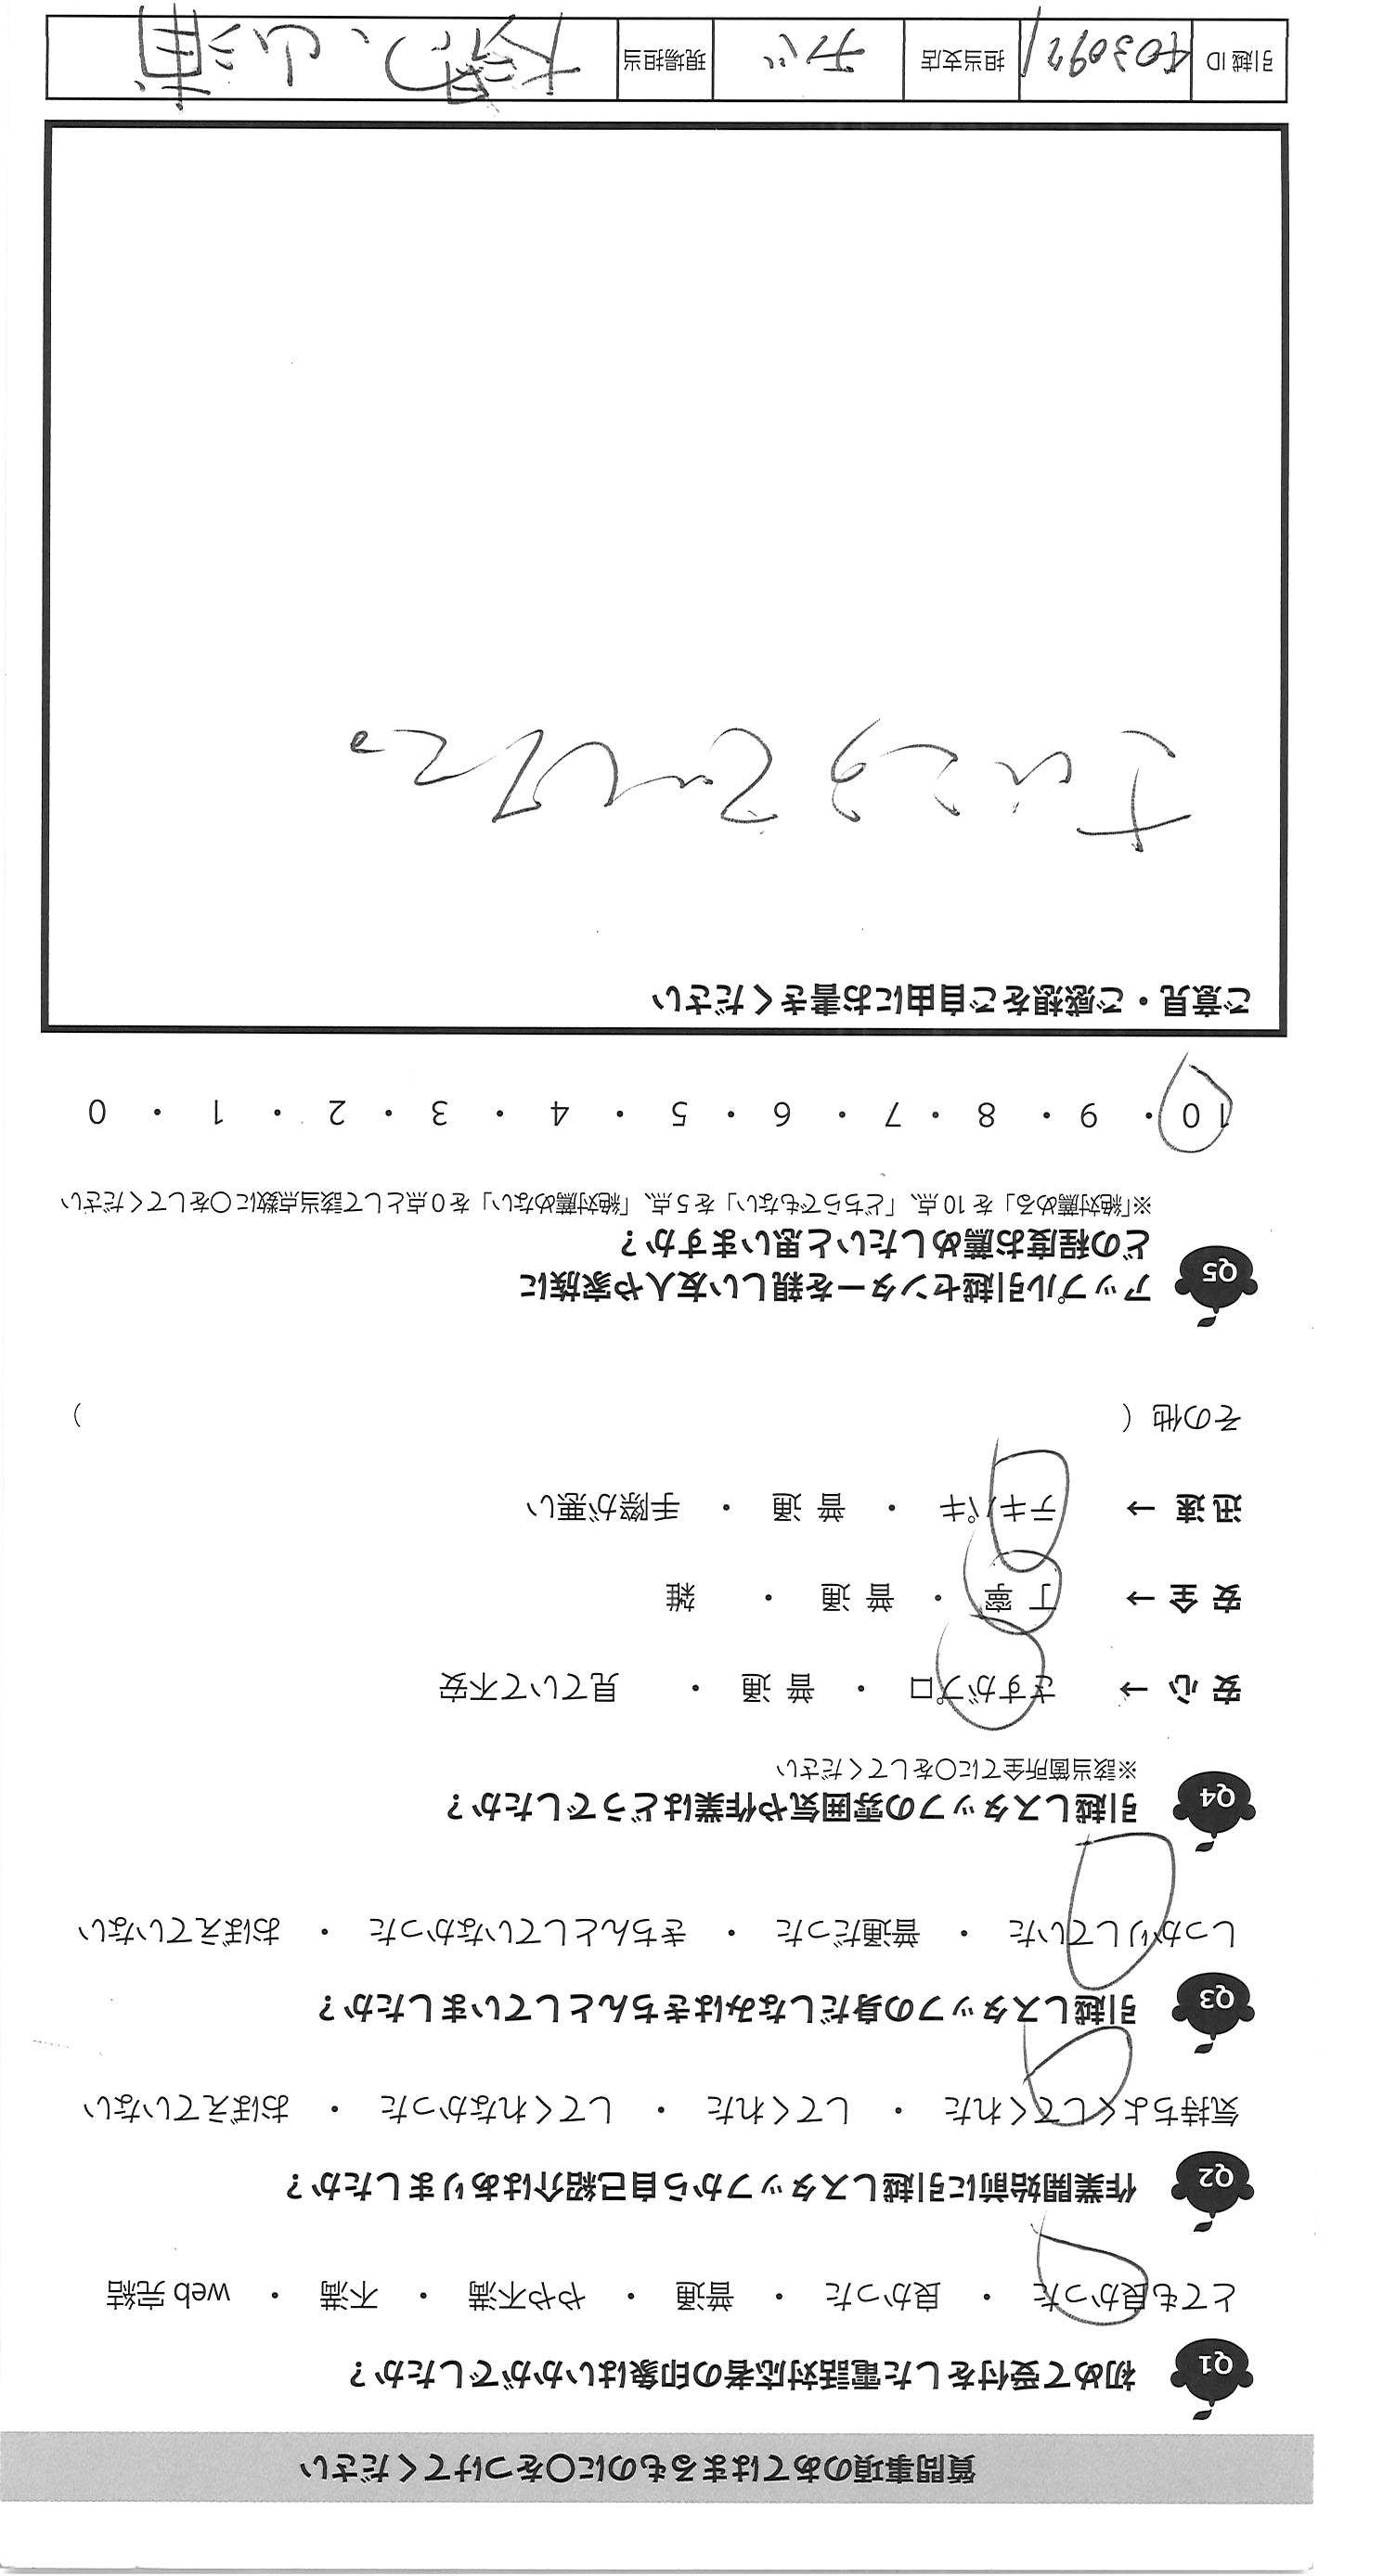 質問事項のあてはまるものに〇をつけてください
Q1 初めて受付をした電話対応者の印象はいかがでしたか？
とても良かった ・ 良かった ・ 普通 ・ やや不満 ・ 不満 ・ web 完結
Q2 作業開始前に引越しスタッフから自己紹介はありましたか？
気持ちよくしてくれた ・ してくれた ・ してくれなかった ・ おぼえていない
Q3 引越しスタッフの身だしなみはきちんとしていましたか？
しっかりしていた ・ 普通だった ・ きちんとしていなかった ・ おぼえていない
Q4 引越しスタッフの雰囲気や作業はどうでしたか？
※該当箇所全てに〇をしてください
安 心 → さすがプロ ・ 普 通 ・ 見ていて不安
安 全 → 丁 寧 ・ 普 通 ・ 雑
迅 速 → テキパキ ・ 普 通 ・ 手際が悪い
その他（ ）
Q5 アップル引越センターを親しい友人や家族に
どの程度お薦めしたいと思いますか？
※「絶対薦める」を 10 点、「どちらでもない」を 5 点、「絶対薦めない」を 0 点として該当点数に〇をしてください
10 ・ 9 ・ 8 ・ 7 ・ 6 ・ 5 ・ 4 ・ 3 ・ 2 ・ 1 ・ 0
ご意見・ご感想をご自由にお書きください
引越 ID 担当支店 チバ 現場担当